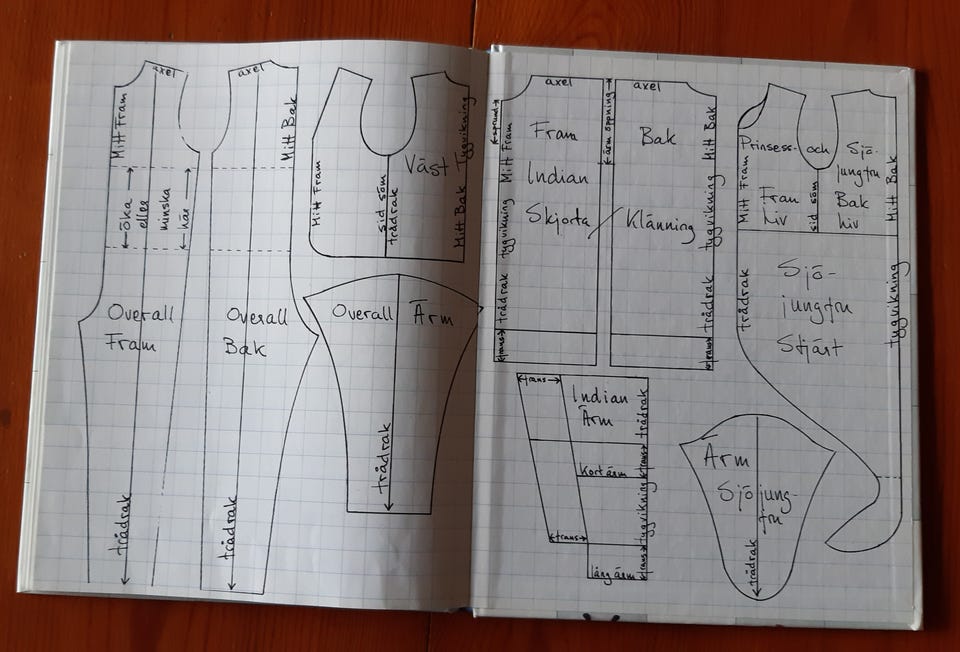 axel
Mitt Fram
öka
eller
minska
här
Overall
Fram
trådrak
axel
Mitt Bak
Overall
Bak
trådrak
Väst
Mitt Fram
sid söm
trådrak
Mitt Bak Tygvikning
Overall Ärm
trådrak
axel
sprund
Mitt Fram
tygvikning
trådrak
Fram
Indian
Skjorta / Klänning
frans
ärm öppning
axel
Bak
Mitt Bak
tygvikning
trådrak
frans
frans
Indian
Ärm
trådrak
Kort ärm
frans
tygvikning
frans
frans
lång ärm
Prinsess- och
Sjö-
jungfru
Mitt Fram
Fram
liv
sid söm
Bak
liv
Mitt Bak
trådrak
Sjö-
jungfru
Stjärt
tygvikning
Ärm
Sjöjung-
fru
trådrak